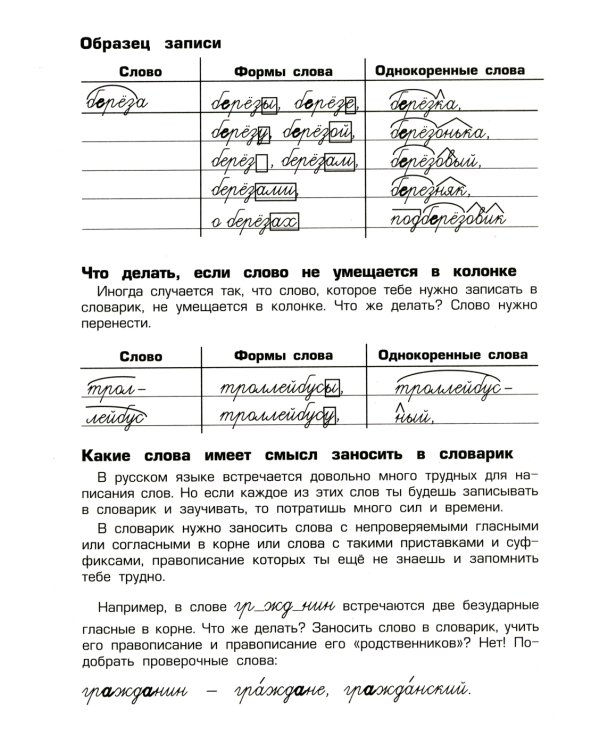 Образец записи
Слово Формы слова Однокоренные слова
берёза берёзы, берёзе, берёзка,
берёзу, берёзой, берёзонька,
берёз , берёзам, берёзовый,
берёзами, березняк,
о берёзах подберёзовик
Что делать, если слово не умещается в колонке
Иногда случается так, что слово, которое тебе нужно записать в
словарик, не умещается в колонке. Что же делать? Слово нужно
перенести.
Слово Формы слова Однокоренные слова
трол- троллейбусы, троллейбус-
лейбус троллейбусу, ный,
Какие слова имеет смысл заносить в словарик
В русском языке встречается довольно много трудных для на-
писания слов. Но если каждое из этих слов ты будешь записывать
в словарик и заучивать, то потратишь много сил и времени.
В словарик нужно заносить слова с непроверяемыми гласными
или согласными в корне или слова с такими приставками и суф-
фиксами, правописание которых ты ещё не знаешь и запомнить
тебе трудно.
Например, в слове гр_жд_нин встречаются две безударные
гласные в корне. Что же делать? Заносить слово в словарик, учить
его правописание и правописание его «родственников»? Нет! По-
добрать проверочные слова:
гражданин – гра́ждане, гражда́нский.